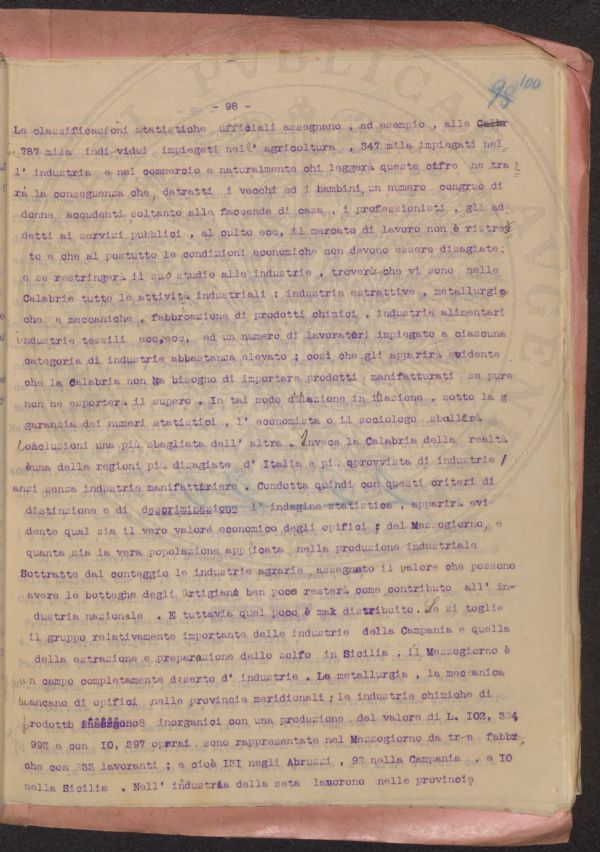 99 100
- 98 -
Le classificazioni statistiche ufficiali assegnano , ad esempio , alle Calbr
787 mila indi-vidui impiegati nell' agricoltura , 347 mila impiegati nel
l' industria e nel commercio e naturalmente chi leggerà queste cifre ne tra
rà la conseguenza che, detratti i vecchi ed i bambini, un numero congruo di
donne accudenti soltanto alla faccende di casa , i professionisti , gli ad
detti ai servizi pubblici , al culto ecc, il mercato di lavoro non è ristret
to e che al postutto le condizioni economiche non devono essere disagiate;
e se restringerà il suo studio alle industrie , troverà che vi sono nelle
Calabrie tutte le attività industriali : industrie estrattive , metallurgic
che e meccaniche , fabbrcazione di prodotti chimici , industrie alimentari
industrie tessili ecc, ecc, ed un numero di lavoratori impiegato a ciascuna
categoria di industrie abbastanza elevato ; così che gli apparirà evidente
che la Calabria non ha bisogno di importare prodotti manifatturati se pure
non ne esporterà il supero . In tal modo d'illazione in illazione , sotto la g
garanzia dei numeri statistici , l' economista o il sociologo sballerà
conclusioni una più sbagliata dell' altra . Invece la Calabria della realtà
èuna delle regioni più disagiate d' Italia e più qprovvista di industrie /
anzi senza industrie manifattiriere . Condotta quindi con questi criteri di
distinzione e di descriminazione l' indagine statistica , apparirà evi-
dente qual sia il vero valore economico degli opifici ; del Mezzogiorno, e
quanta sia la vera popolazione applicata nella produzione industriale
Sottratte dal conteggio le industrie agrarie, assegnato il valore che possono
avere le botteghe degli Artigiani ben poca resterà come contributo all' in-
dustria nazionale . E tuttavia quel poco è mak distribuito. Se si toglie
il gruppo relativamente importante delle industrie della Campania e quella
della estrazione e preparazione dello zolfo in Sicilia , il Mezzogiorno è
un campo completamente deserto d' industrie . La metallurgia , la meccanica
mancano di opifici nelle provincie meridionali ; le industrie chimiche di
prodotti inorganici con una produzione del valore di L. I03, 334
993 e con I0, 397 operai sono rappresentate nel Mezzogiorno da tre fabbri
che con 233 lavoranti ; e cioè I3I negli Abruzzi , 92 nella Campania , e I0
nella Sicilia . Nell' industria della seta lavorono nelle provincie